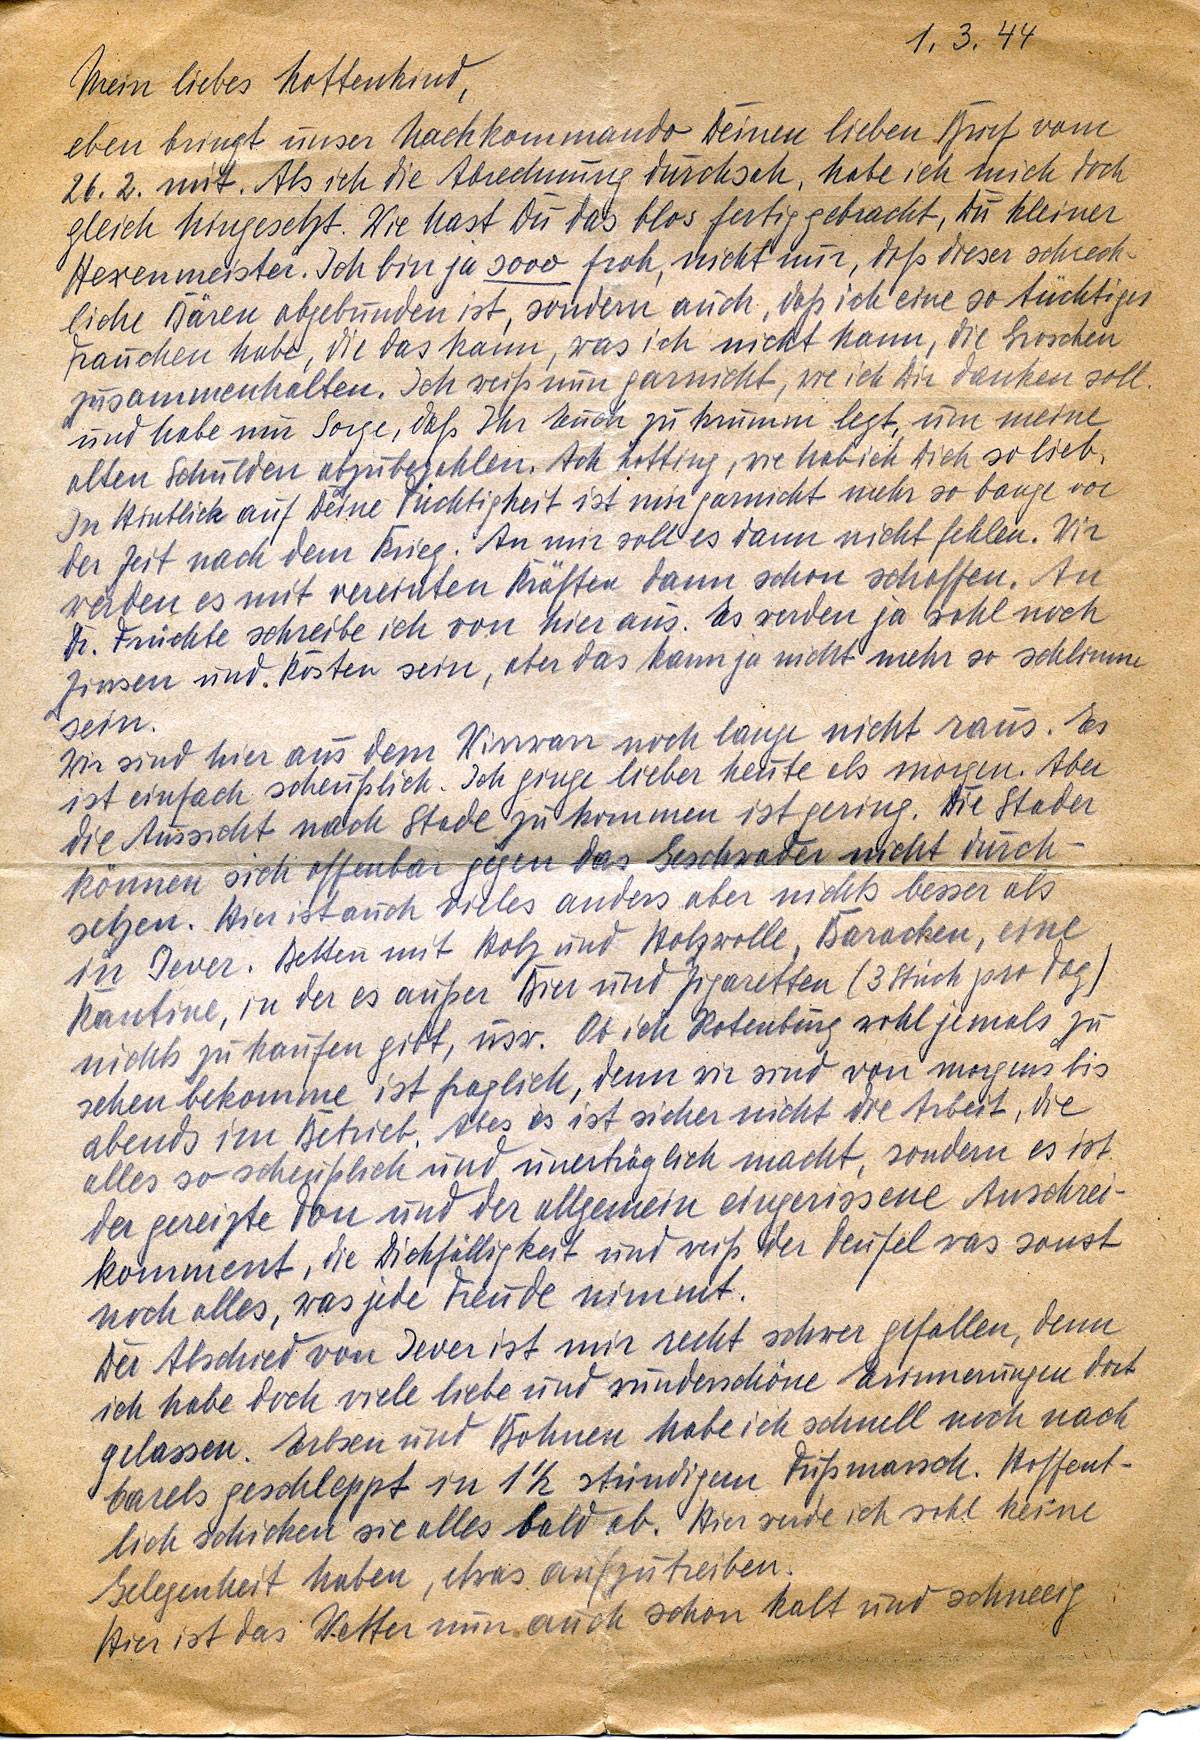 1. 3. 44
Mein liebes Hottenkind,
eben bringt unser Nachkommando Deinen lieben Brief vom
26. 2. mit. Als ich die Abrechnung durchsah, habe ich mich doch
gleich hingesetzt. Wie hast Du das blos fertiggebracht, Du kleiner
Hexenmeister. Ich bin ja sooo froh, nicht nur, daß dieser schreck-
liche Bären abgebunden ist, sondern auch, daß ich eine so tüchtiges
Frauchen habe, die das kann, was ich nicht kann, die Groschen
zusammenhalten. Ich weiß nun garnicht, wie ich Dir danken soll.
und habe nur Sorge, daß Ihr Euch zu krumm legt, um meine
alten Schulden abzubezahlen. Ach Hotting, wie hab ich Dich so lieb.
In Hinblick auf Deine Tüchtigkeit ist mir garnicht mehr so bange vor
der Zeit nach dem Krieg. An mir soll es dann nicht fehlen. Wir
werden es mit vereinten Kräften dann schon schaffen. An
Dr. Früchte schreibe ich von hier aus. Es werden ja wohl noch
Zinsen und Kosten sein, aber das kann ja nicht mehr so schlimm
sein.
Wir sind hier aus dem Wirrwarr noch lange nicht raus. Es
ist einfach scheußlich. Ich ginge lieber heute als morgen. Aber
die Aussicht nach Stade zu kommen ist gering. Die Stader
können sich offenbar gegen das Geschwader nicht durch-
setzen. Hier ist auch vieles anders aber nichts besser als
in Jever. Betten mit Holz und Holzwolle, Baracken, eine
Kantine, in der es außer Bier und Zigaretten (3 Stück pro Tag)
nichts zu kaufen gibt, usw. Ob ich Rotenburg wohl jemals zu
sehen bekomme ist fraglich, denn wir sind von morgens bis
abends im Betrieb. Aber es ist sicher nicht die Arbeit, die
alles so scheußlich und unerträglich macht, sondern es ist
der gereizte Ton und der allgemein eingerissene Anschrei-
komment, die Dickfälligkeit und weiß der Teufel was sonst
noch alles, was jede Freude nimmt.
Der Abschied von Jever ist mir recht schwer gefallen, denn
ich habe doch viele liebe und wunderschöne Erinnerungen dort
gelassen. Erbsen und Bohnen habe ich schnell noch nach
geschleppt in 1½ stündigem Fußmarsch. Hoffent-
lich schicken sie alles bald ab. Hier werde ich wohl keine
Gelegenheit haben, etwas aufzutreiben.
Hier ist das Wetter nun auch schon kalt und schneeig